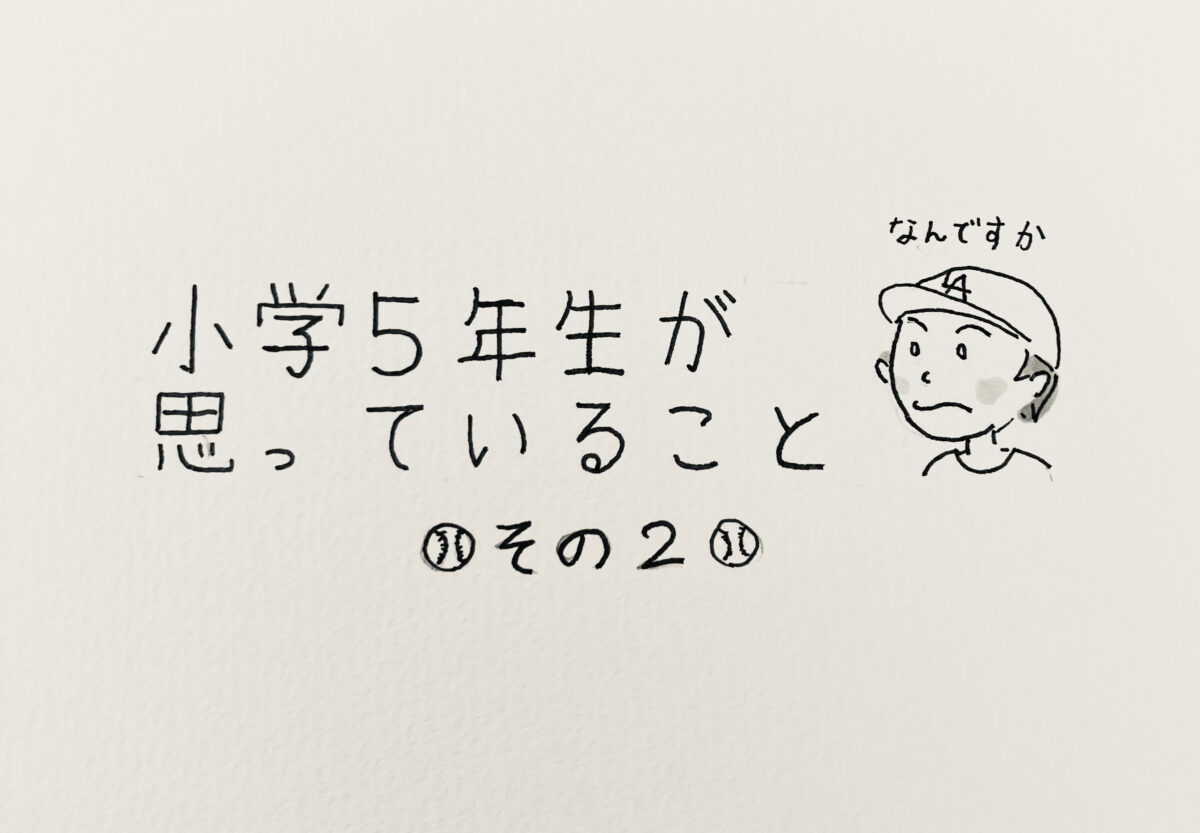 なんですか
小学5年生が
思っていること
その2
LA